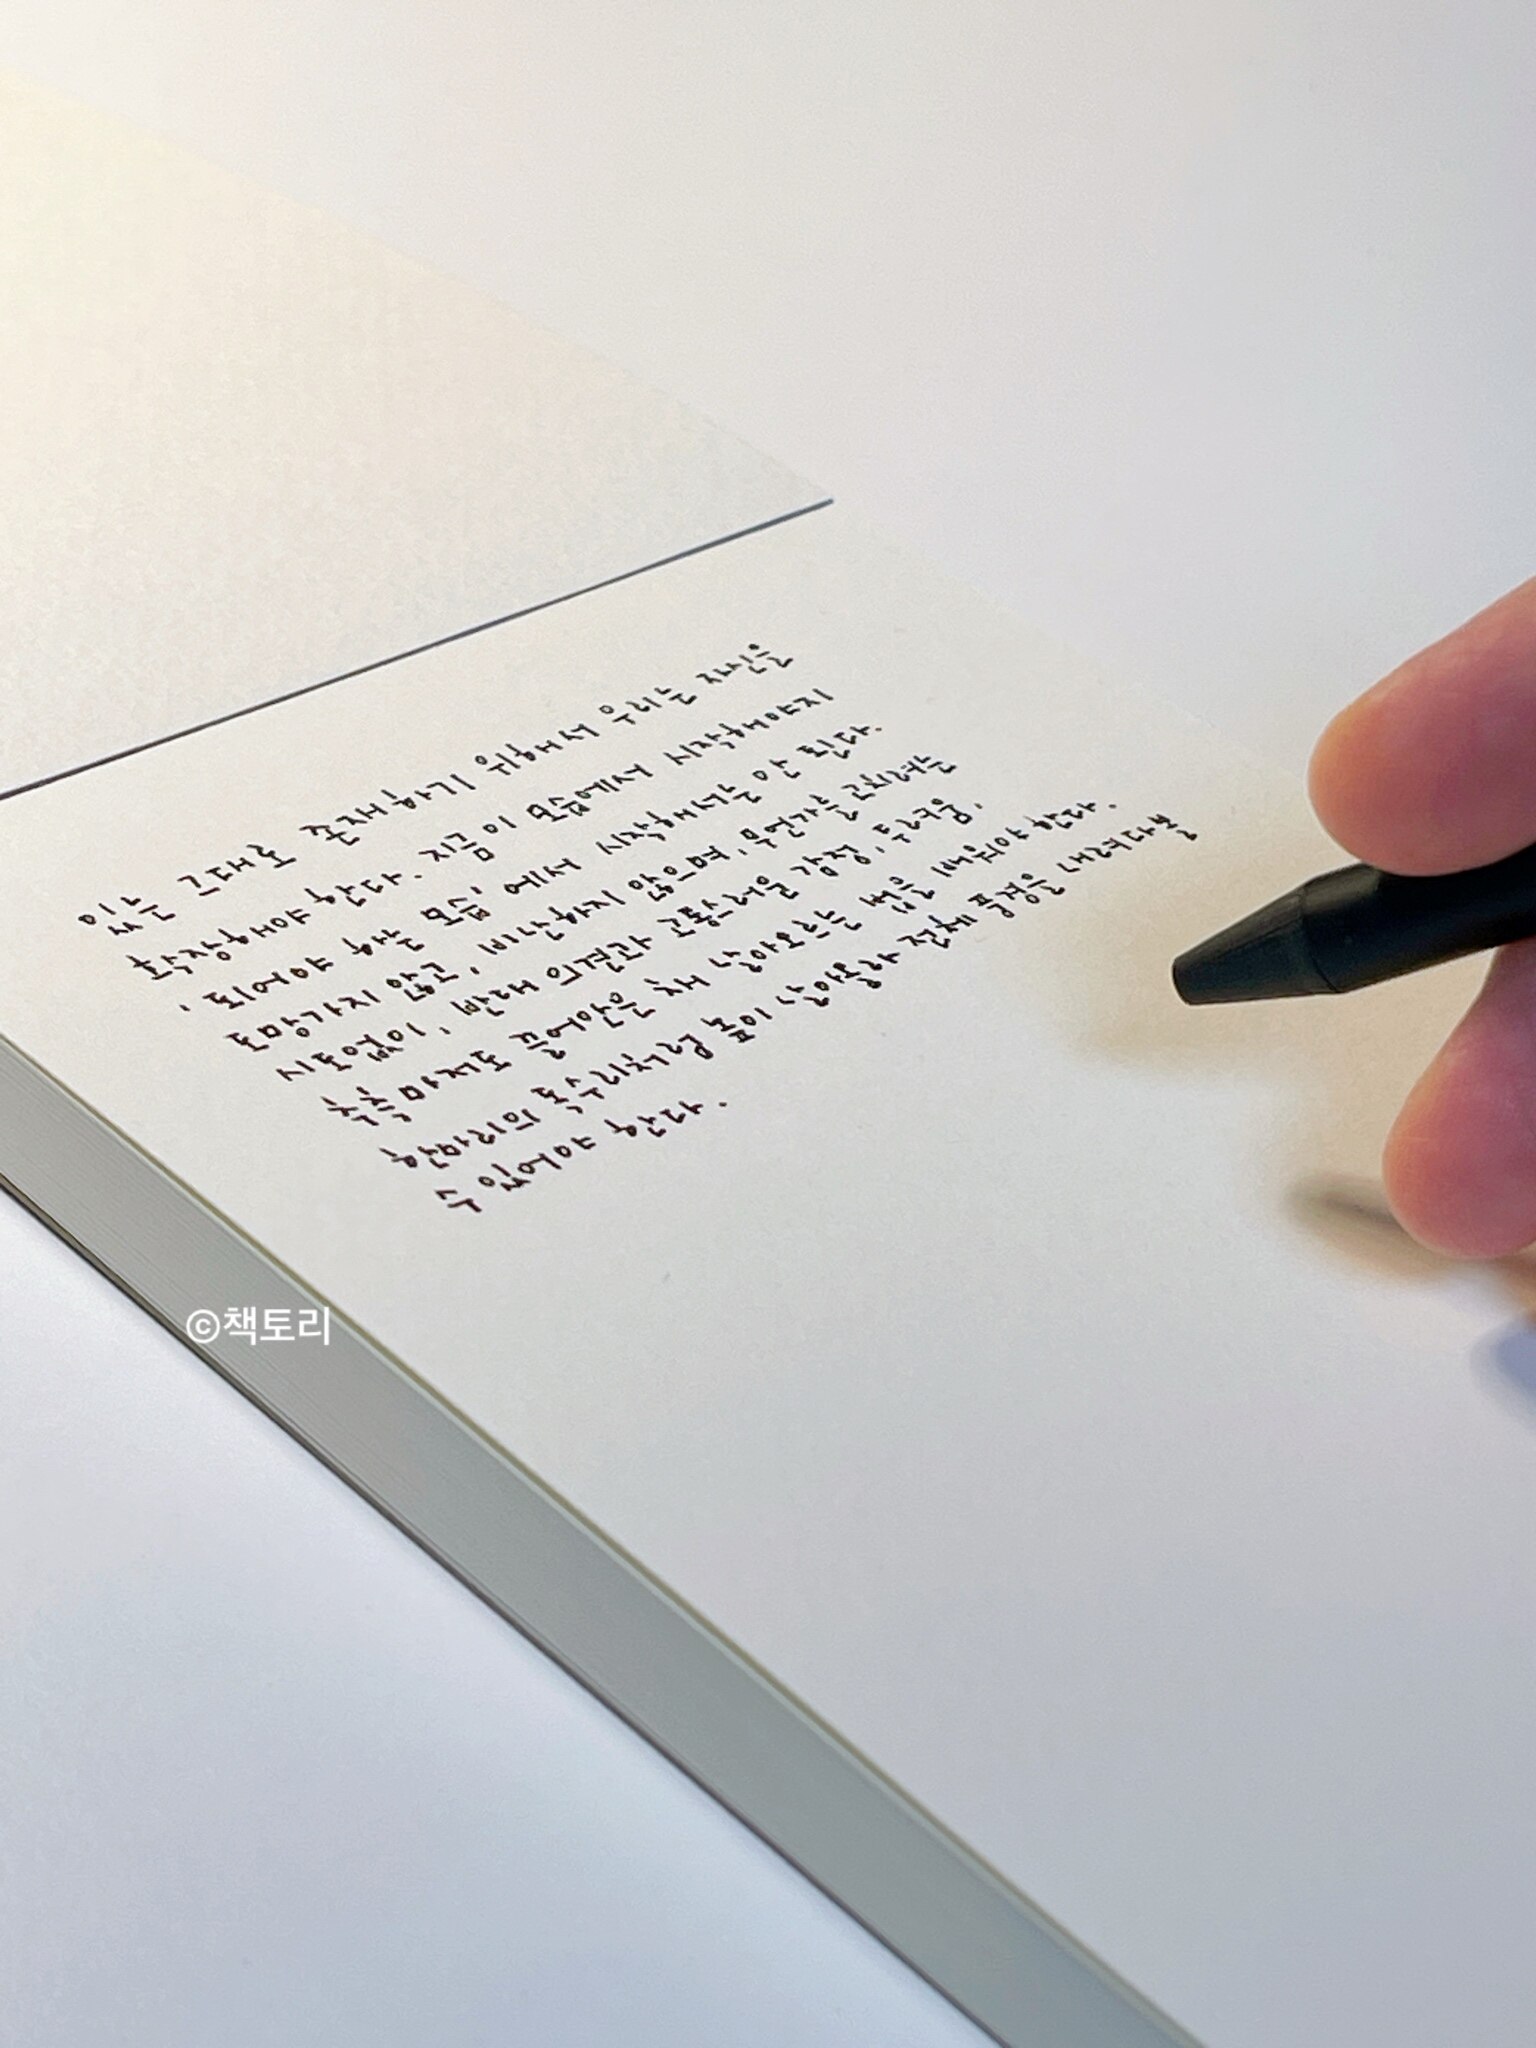 있는 그대로 존재하기 위해서 우리는 자신을
확장해야 한다. 지금 이 모습에서 시작해야지
'되어야 하는 모습'에서 시작해서는 안 된다.
도망가지 않고, 비난하지 않으며, 무언가를 고치려는
시도없이, 반대 의견과 고통스러운 감정, 두려움,
추측마저도 끌어안은 채 날아오르는 법을 배워야 한다.
한마리의 독수리처럼 높이 날아올라 전체 풍경을 내려다볼
수 있어야 한다.
©책토리